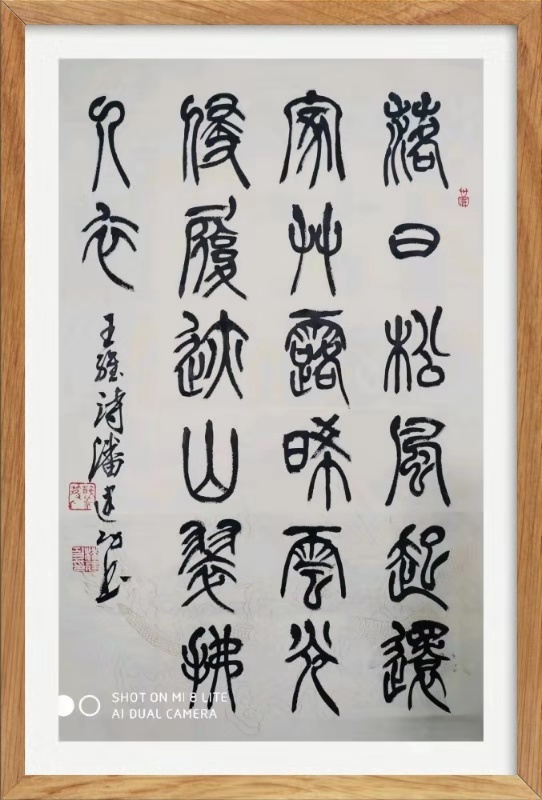 落日松風起還
家艸露晞雲光
侵履迹山翠拂
人衣
王維詩潘建
SHOT ON MI 8 LITE
AI DUAL CAMERA